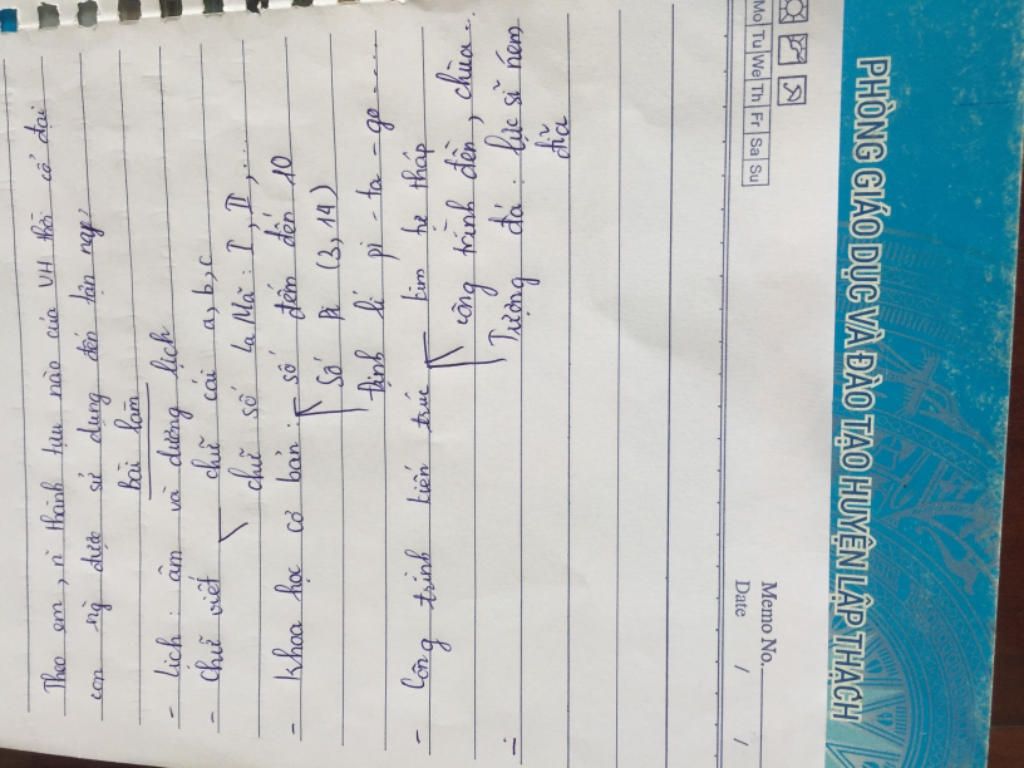 Theo em, n~ thành tựu nào của VH thời cổ đại
con ng~ được sử dụng đến tận nay?
bài làm
- Lịch: âm và dương lịch
- Chữ viết chữ cái a, b, c
chữ số La Mã: I, II, ....
- Khoa học cơ bản: số đếm đến 10
Số Pi (3, 14)
định lí pi-ta-go.....
- Công trình kiến trúc kim tự tháp
công trình đền, chùa...
- Tượng đá: lực sĩ ném
đĩa
Mo Tu We Th Fr Sa Su
Memo No.
Date / /
PHÒNG GIÁO DỤC VÀ ĐÀO TẠO HUYỆN LẬP THẠCH